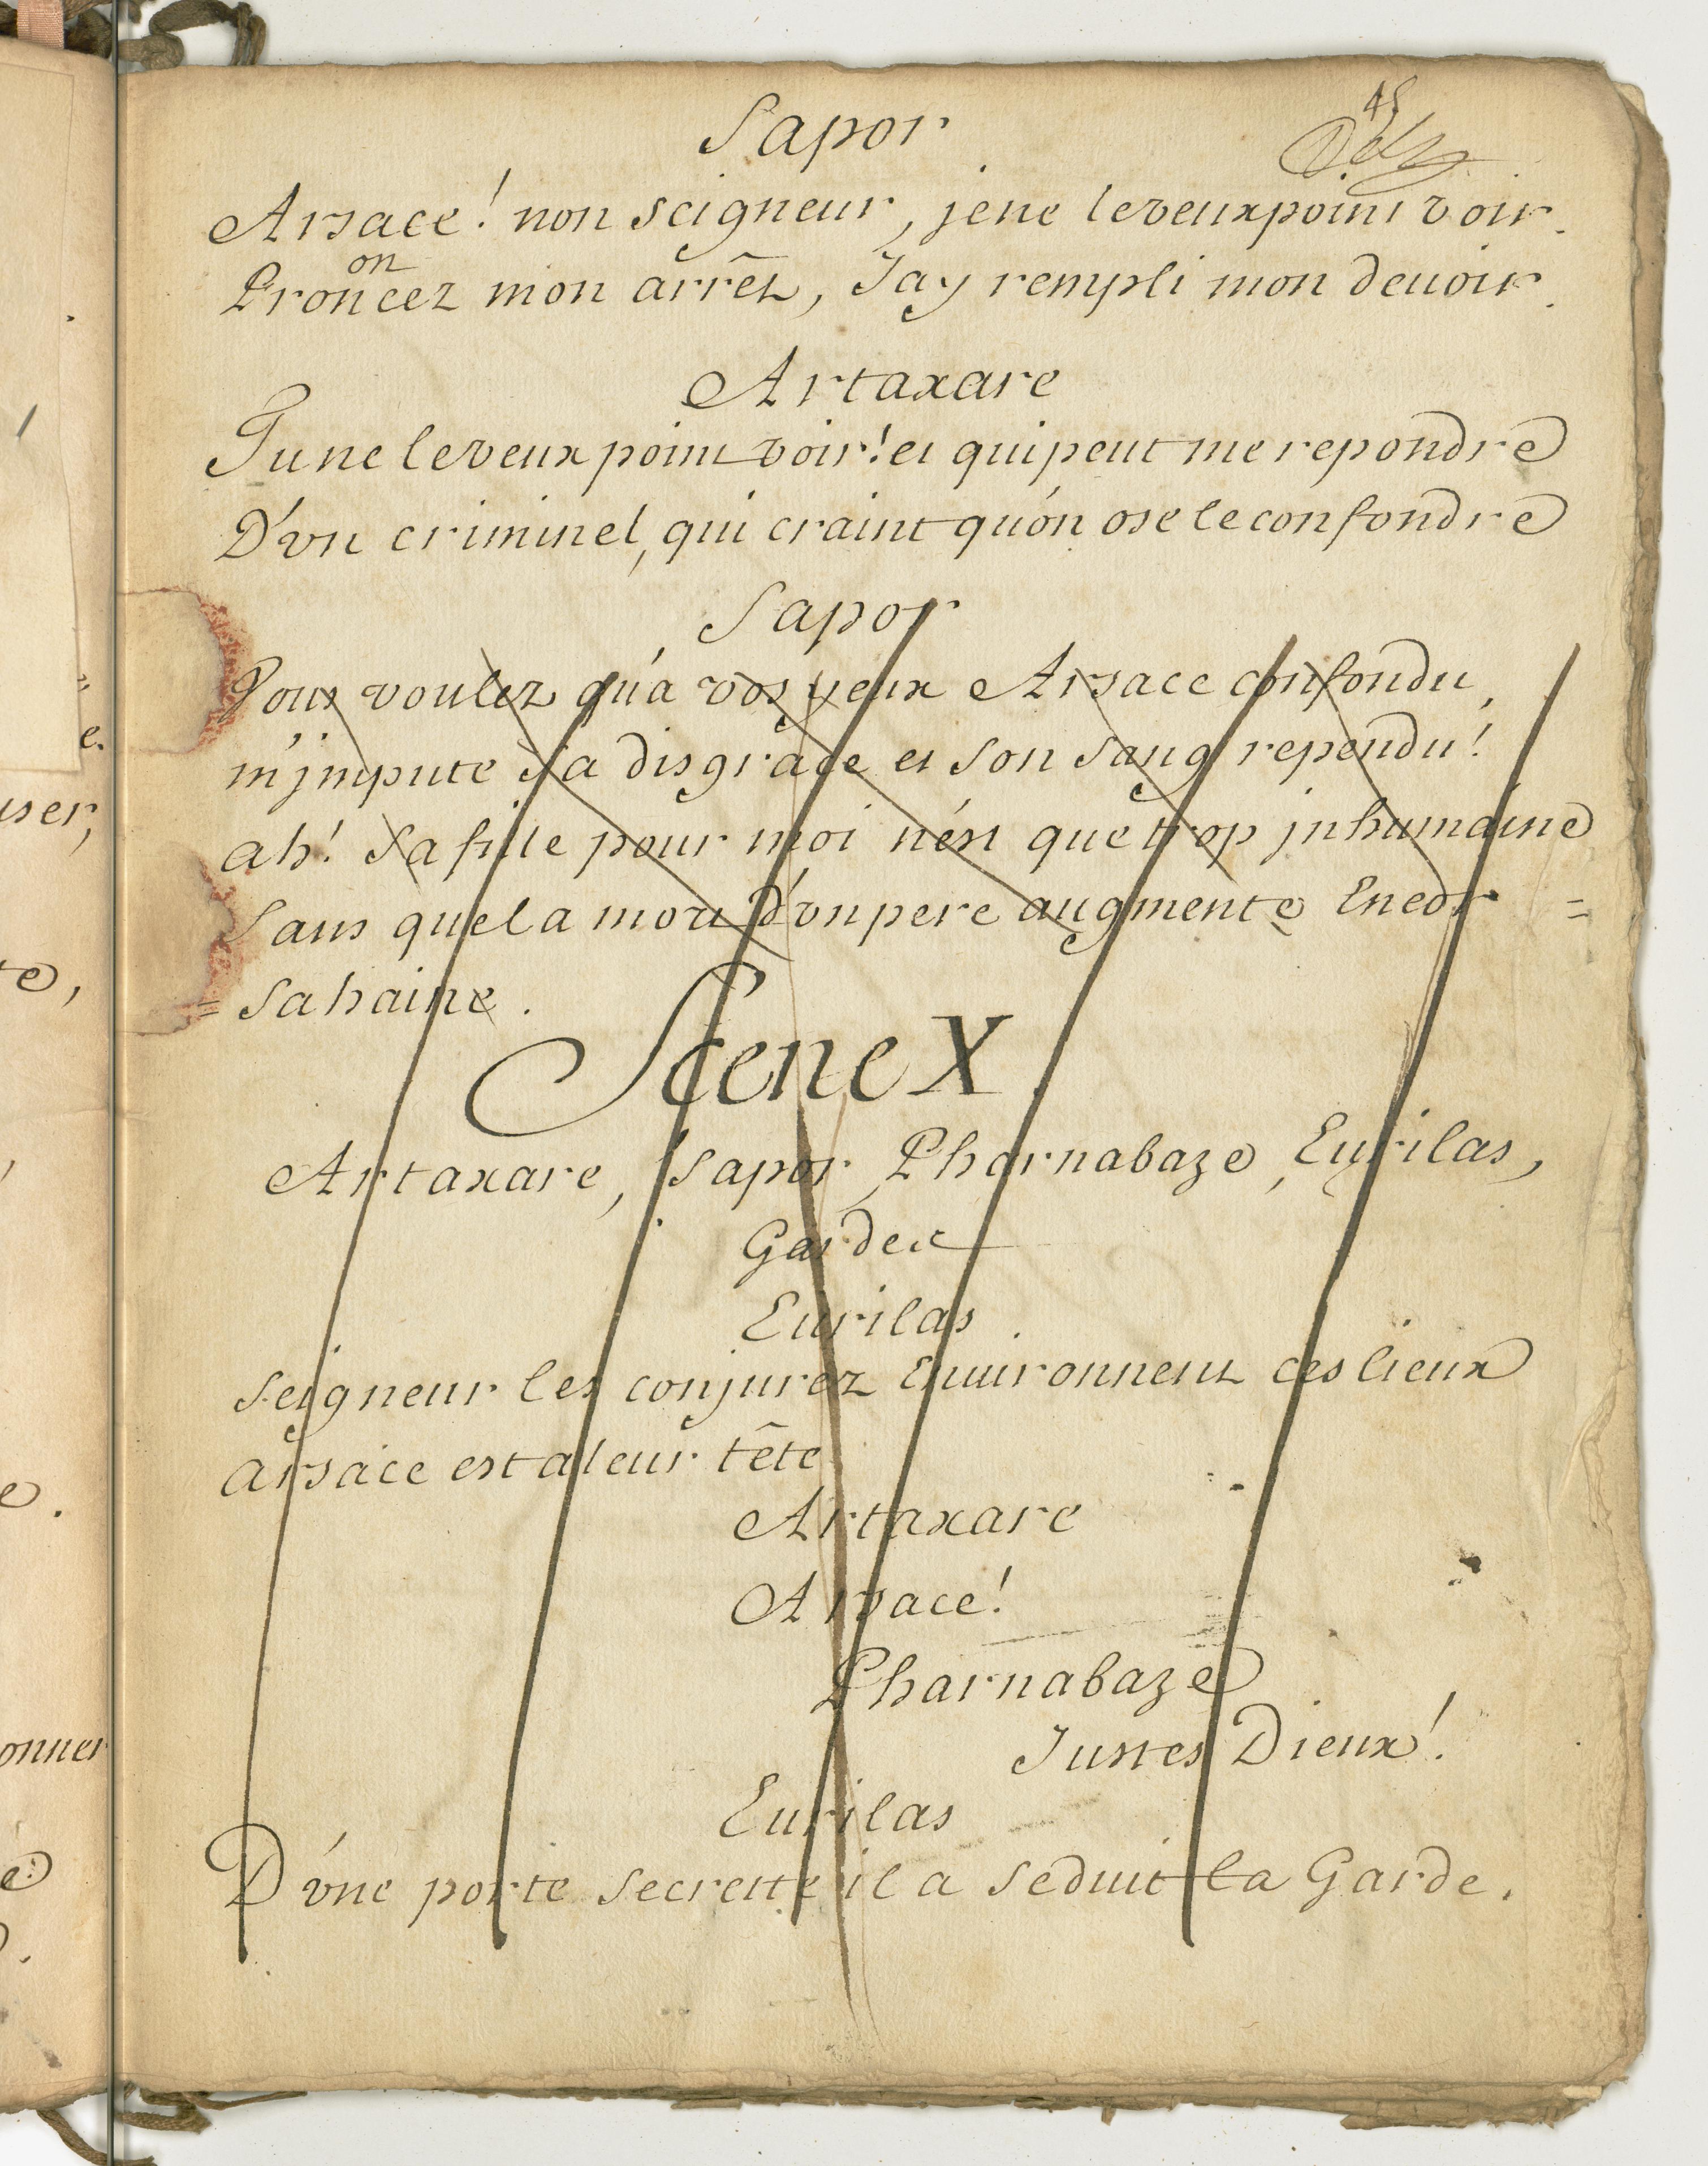 45
Sapor
Arsace! non seigneur, je ne le veux point voir.
on
Proncez mon arrêt, J'ay rempli mon devoir.
Artaxare
Tu ne le veux point voir! et qui peut me repondre
D'un criminel, qui craint qu'on ose le confondre
Sapor
Vous voulez qu'a vos yeux Arsace confondu,
m'jmpute sa disgrace et son sang rependu!
ah! sa fille pour moi n'ést que trop jnhumaine
Sans que la mort d'un pere augmente
= sa haine.
Scene X.
Artaxare, Sapor, Pharnabaze, Eurilas,
Gardes
Eurilas.
Seigneur les conjurez Environnent ces lieux
arsace est a leur tête
Artaxare
Arsace!
Pharnabaze
Justes Dieux!
Eurilas
D'une porte secrette il a seduit la Garde.
e.
user,
te,
e.
onner
e.